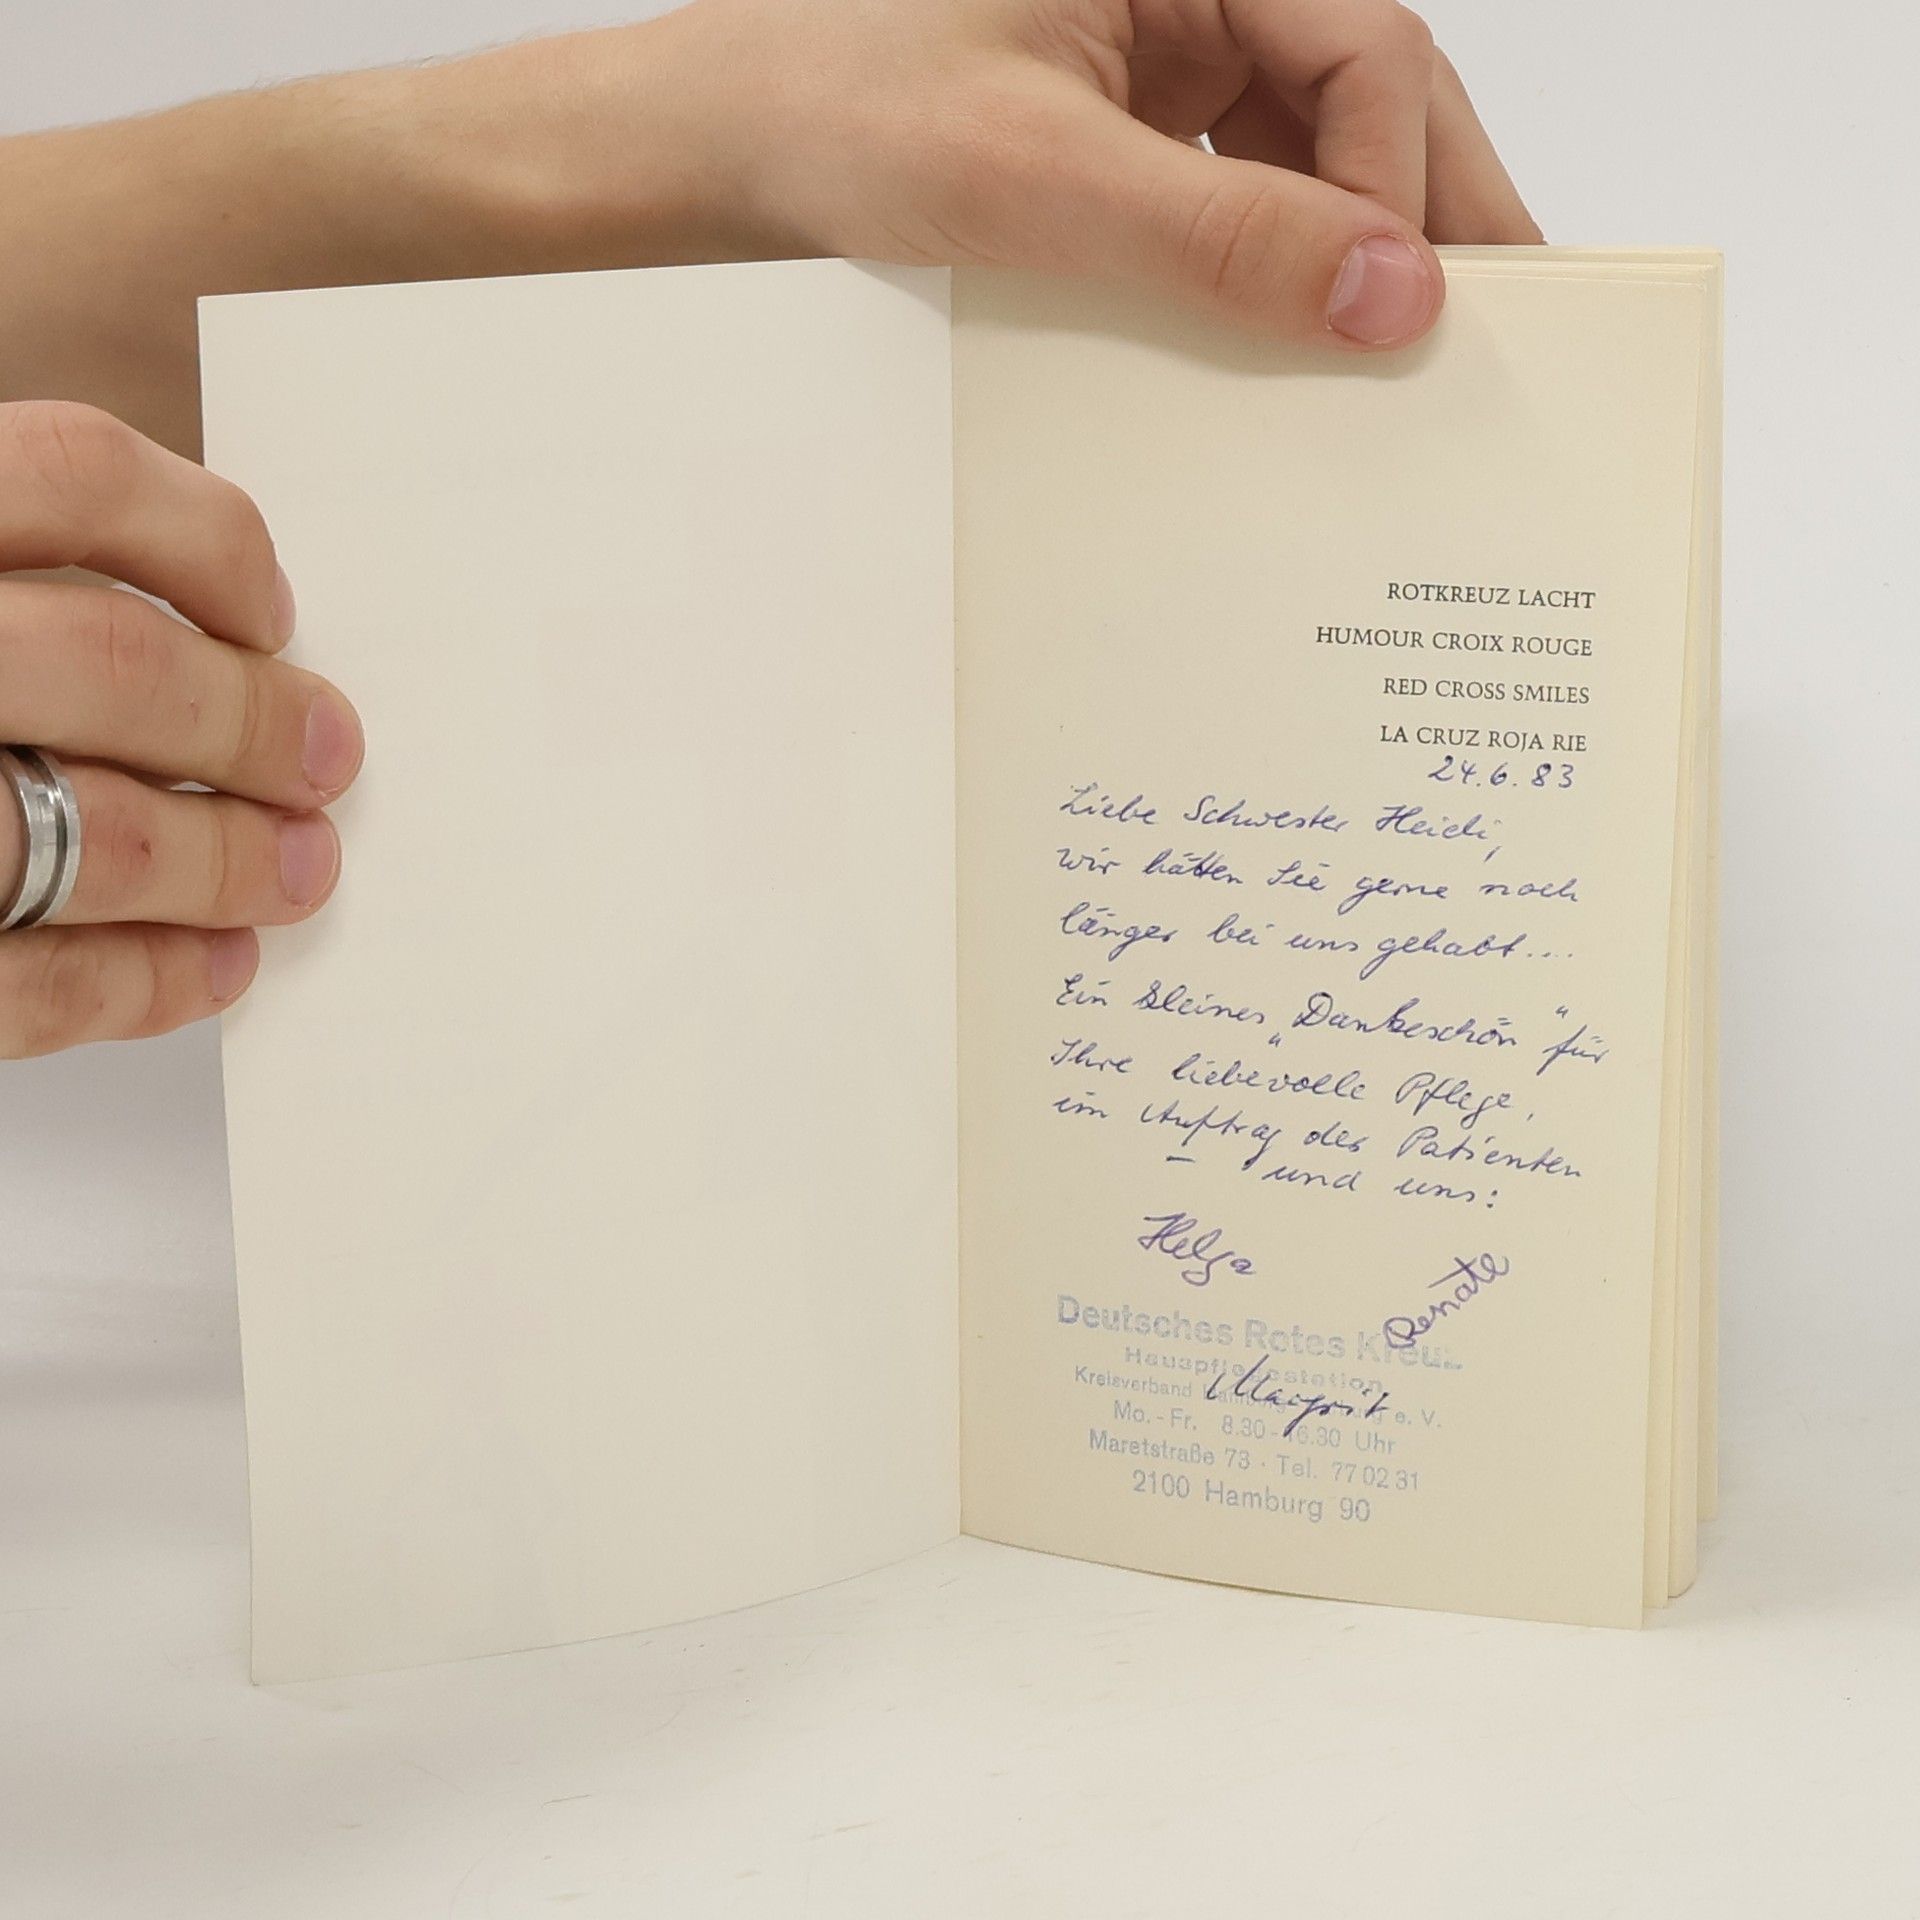 ROTKREUZ LACHT
HUMOUR CROIX ROUGE
RED CROSS SMILES
LA CRUZ ROJA RIE
24.6.83
Liebe Schwester Heidi,
wir hätten Sie gerne noch
länger bei uns gehabt....
Ein kleines „Dankeschön" für
Ihre liebevolle Pflege,
im Auftrag der Patienten
– und uns:
Helga
Renate
Margrit
Deutsches Rotes Kreuz
Hauspflegestation
Kreisverband Hamburg-Harburg e. V.
Mo.-Fr. 8.30-16.30 Uhr
Maretstraße 73 · Tel. 77 02 31
2100 Hamburg 90